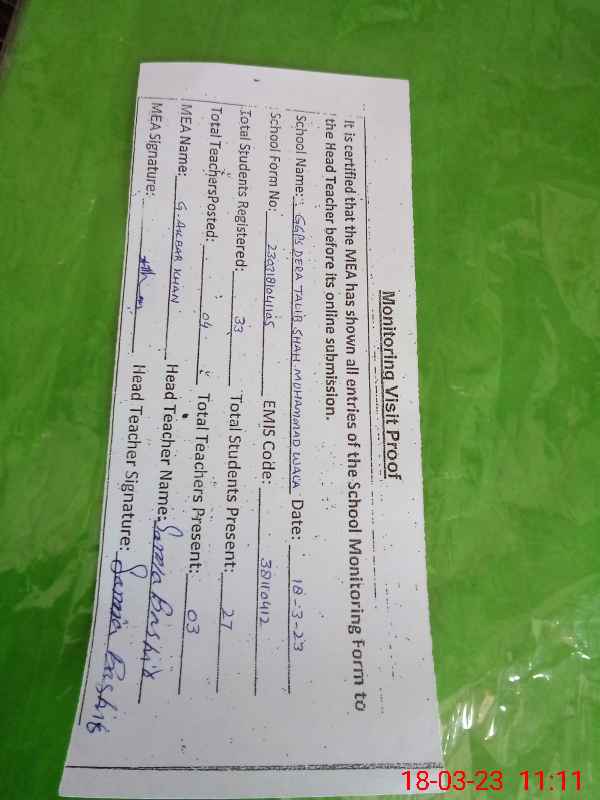 Monitoring Visit Proof
It is certified that the MEA has shown all entries of the School Monitoring Form to
the Head Teacher before its online submission.
School Name: GGPS DERA TALIB SHAH MOHAMMAD WALA Date: 18-3-23
School Form No: 2303181041105 EMIS Code: 38110412
Total Students Registered: 33 Total Students Present: 27
Total TeachersPosted: 04 Total Teachers Present: 03
MEA Name: G. AKBAR KHAN Head Teacher Name: Samia Bashir
MEA Signature: Head Teacher Signature: Samia Bashir
18-03-23 11:11